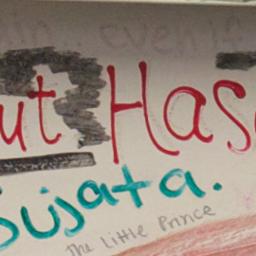 even if
ut Has
Sujata.
The Little Prince